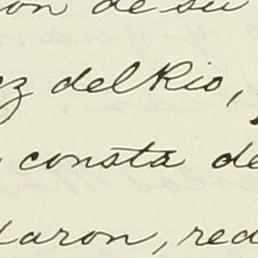 on de su
ez del Rio,
consta de
daron, red